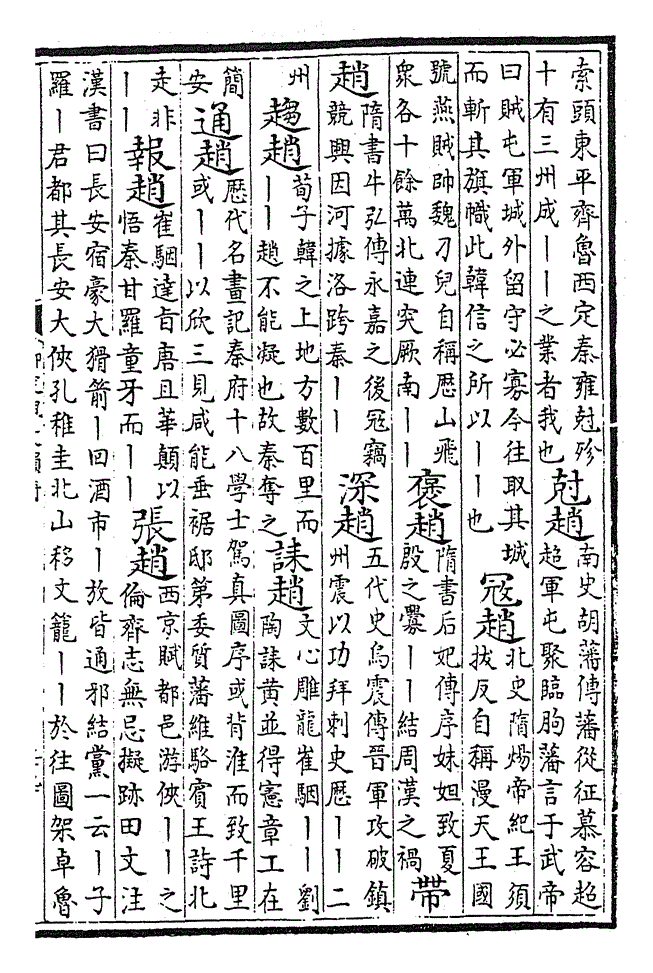 索頭東平齊魯西定秦雍尅殄
十有三州成丨丨之業者我也
尅趙
南史胡藩傳藩從征慕容超
超軍屯聚臨朐藩言于武帝
曰賊屯軍城外留守必寡今往取其城
而斬其旗幟此韓信之所以丨丨也
冦趙
北史隋煬帝紀王須
拔反自稱漫天王國
號燕賊帥魏刀兒自稱歴山飛
衆各十餘萬北連突厥南丨丨
褒趙
隋書后妃傳序妹妲致夏
殷之釁丨丨結周漢之禍
帶
趙
隋書牛弘傳永嘉之後冦竊
競興因河據洛跨秦丨丨
深趙
五代史烏震傳晉軍攻破鎮
州震以功拜刺史歴丨丨二
州
趨趙
荀子韓之上地方數百里而
丨丨趙不能凝也故秦奪之
誄趙
文心雕龍崔駰丨丨劉
陶誄黄並得憲章工在
簡
安
通趙
歴代名畫記秦府十八學士寫真圖序或背淮而致千里
或丨丨以欣三見咸能垂裾邸第委質藩維駱賓王詩北
走非
丨丨
報趙
崔駰達旨唐且華顛以
悟秦甘羅童牙而丨丨
張趙
西京賦都邑游俠丨丨之
倫齊志無忌擬跡田文注
漢書曰長安宿豪大猾箭丨回酒市丨放皆通邪結黨一云丨子
羅丨君都其長安大俠孔稚圭北山移文籠丨丨於往圖架卓魯